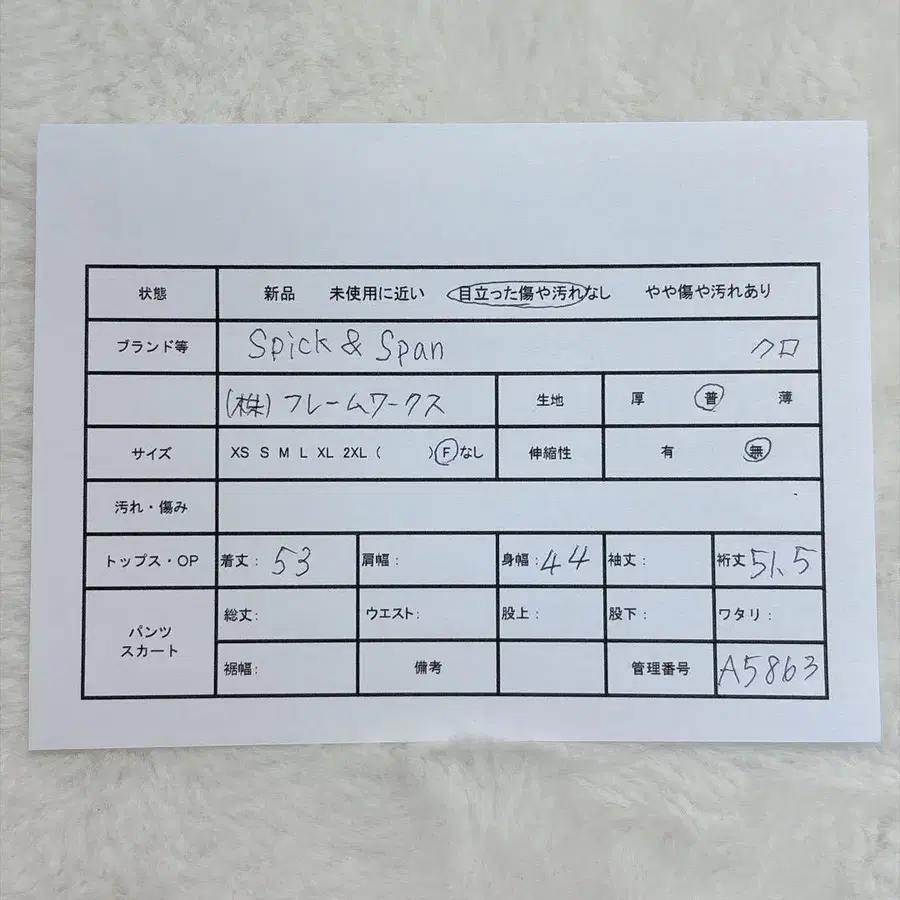 状態 新品 未使用に近い 目立った傷や汚れなし やや傷や汚れあり
ブランド等 Spick & Span クロ
(株)フレームワークス 生地 厚 普 薄
サイズ XS S M L XL 2XL ( ) F なし 伸縮性 有 無
汚れ・傷み
トップス・OP 着丈: 53 肩幅: 身幅: 44 袖丈: 裄丈 51.5
パンツ スカート 総丈: ウエスト: 股上: 股下: ワタリ:
裾幅: 備考 管理番号 A5863